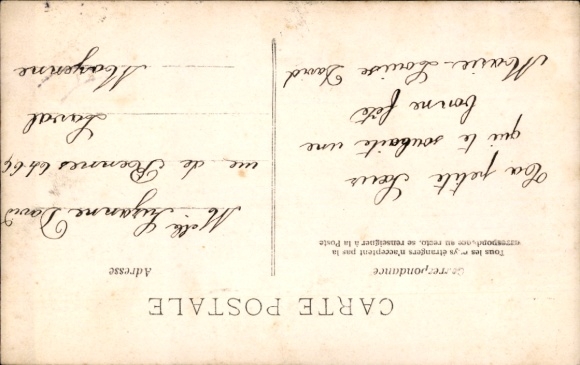 CARTE POSTALE
Correspondance
Tous les pays étrangers n'acceptent pas la
correspondance au recto, se renseigner à la Poste
Ta petite Sœur
qui te souhaite une
bonne fête
Marie-Louise David
Adresse
Melle Suzanne David
rue de Rennes 64
Laval
Mayenne